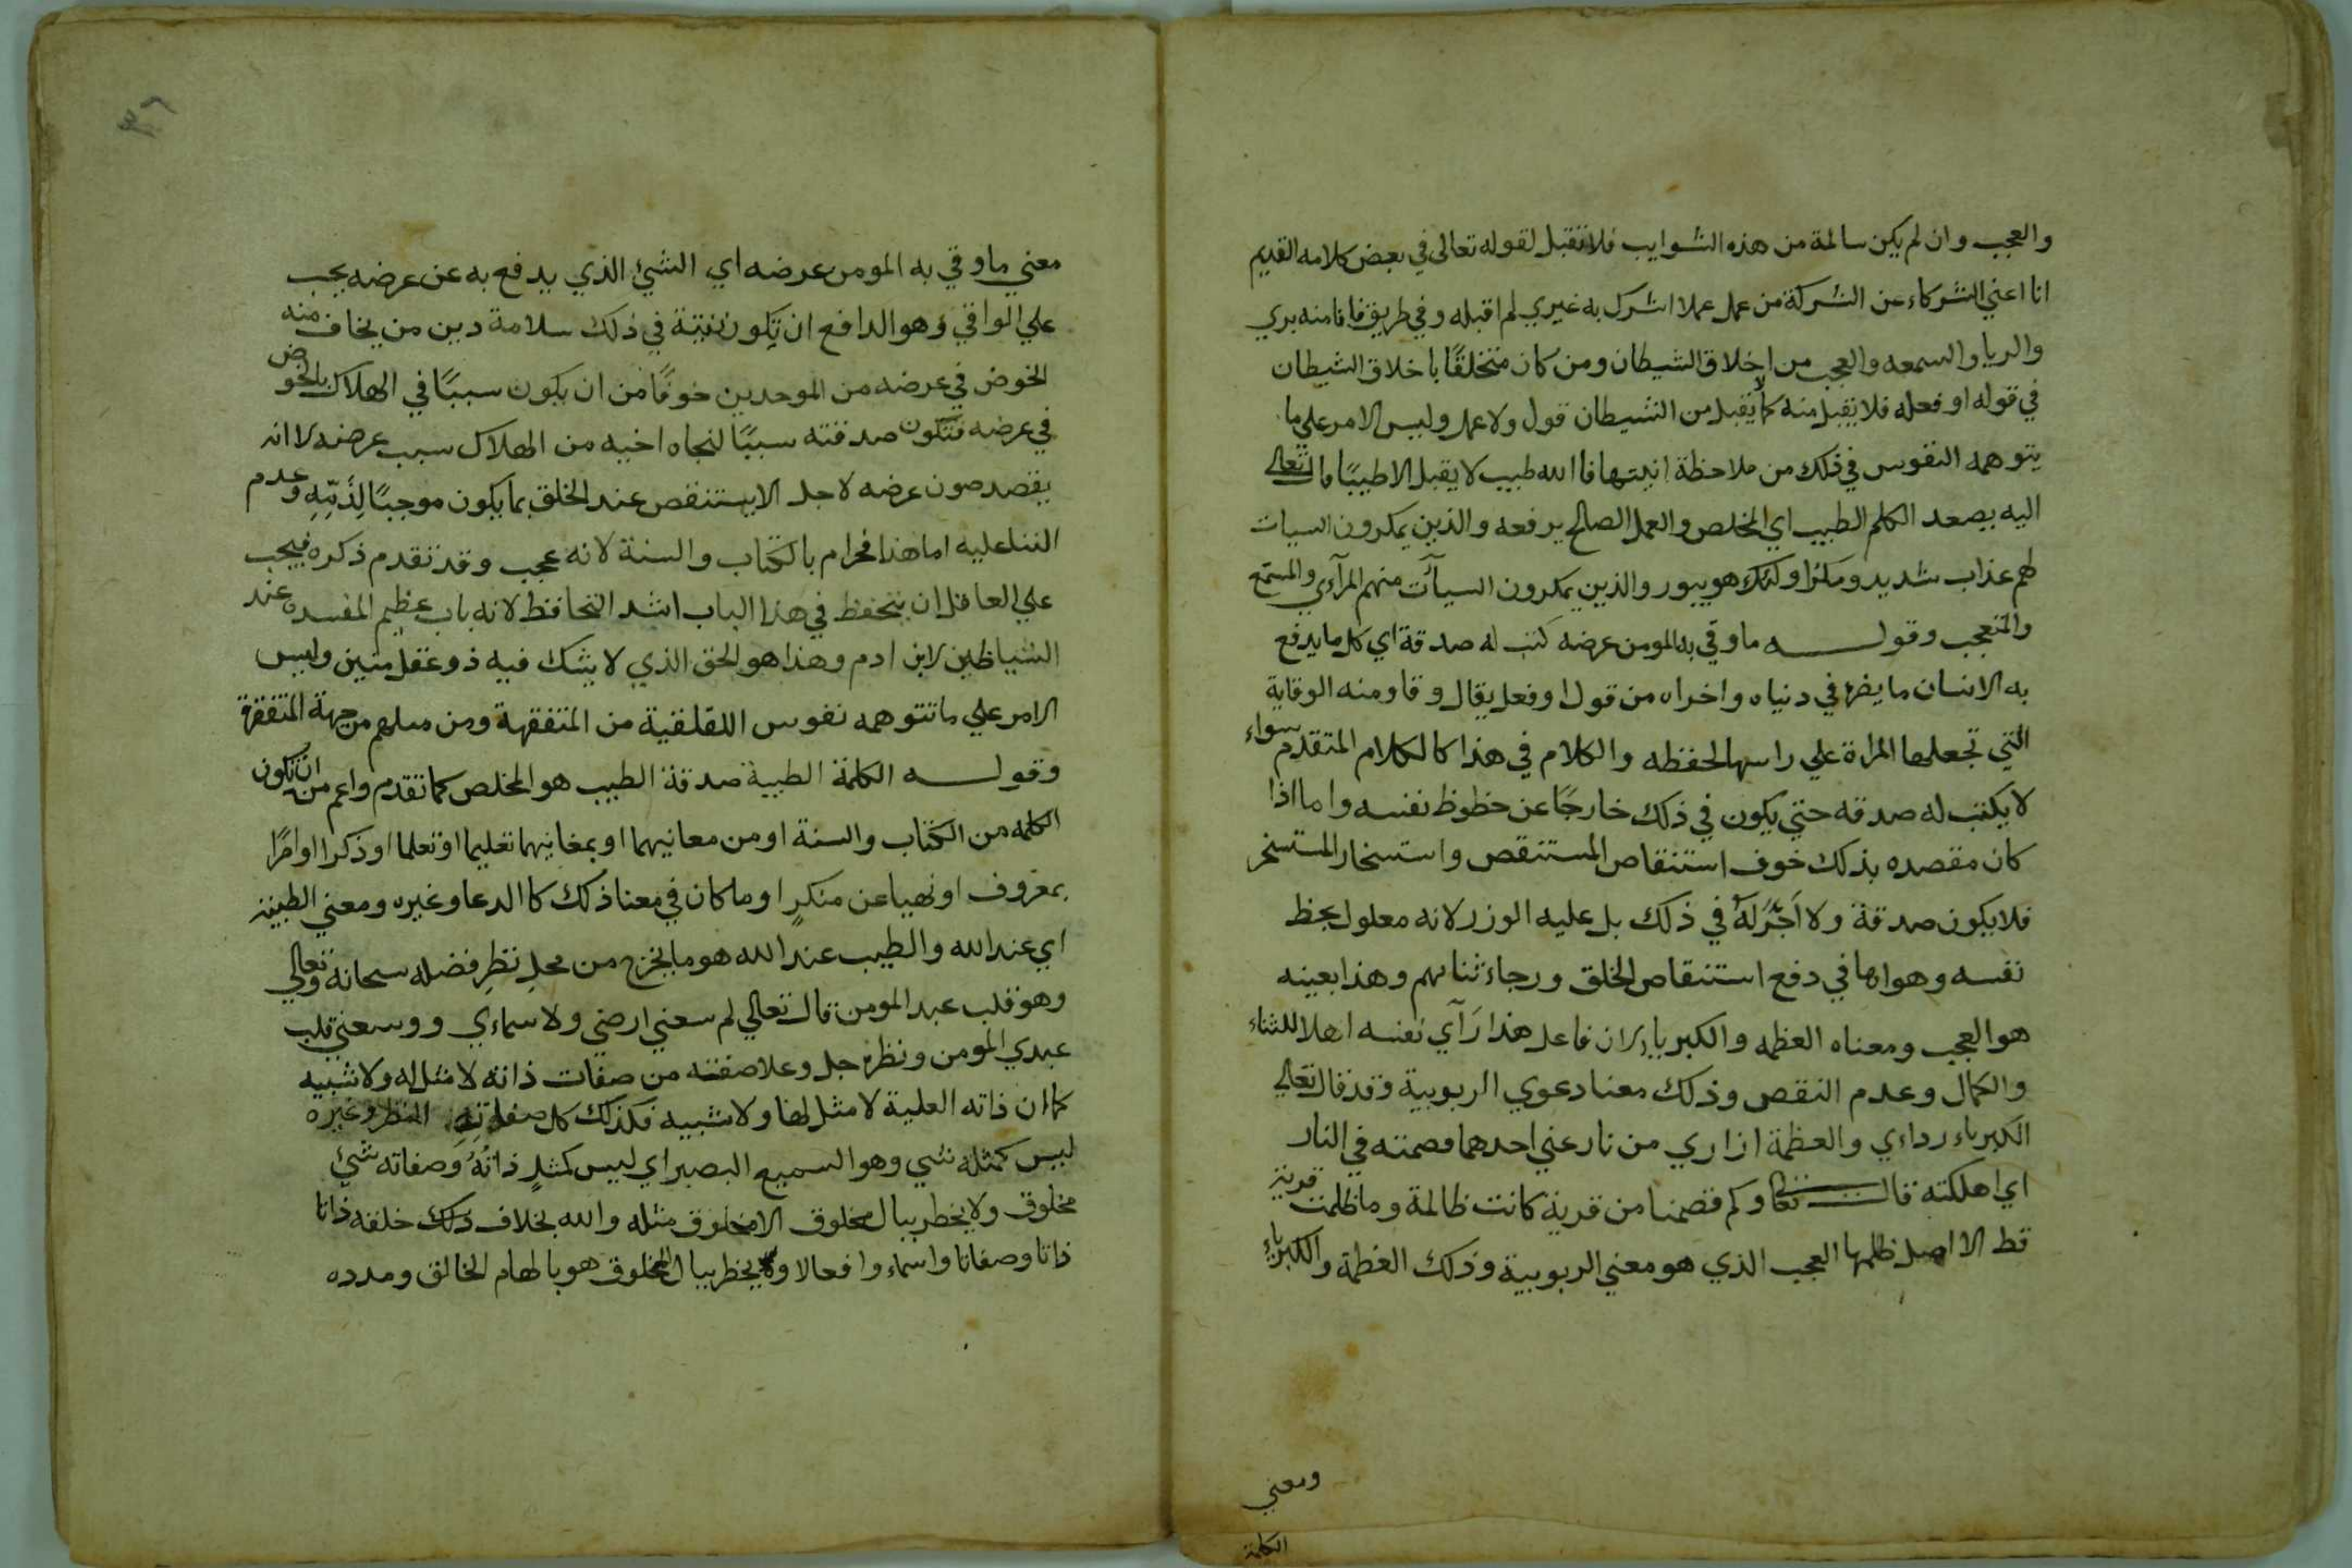 والعجب وان لم يكن سالمة من هذه الشوايب فلا تقبل لقوله تعالى في بعض كلامه القديم
انا اغني الشركاء عن الشركة من عمل عملا اشرك به غيري لم اقبله وفي طريق فانا منه بري
والريا والسمعه والعجب من اخلاق الشيطان ومن كان متخلقًا باخلاق الشيطان
في قوله او فعله فلا يقبل منه كما لا يقبل من الشيطان قول ولا عمل وليس الامر على ما
يتوهمه النفوس في ذلك من ملاحظة انيتها فاالله طيب لا يقبل الا طيبًا قال تعالى
اليه يصعد الكلم الطيب اي المخلص والعمل الصالح يرفعه والذين يمكرون السيات
لهم عذاب شديد ومكر اولئك هو يبور والذين يمكرون السيآت منهم المرآءي والمستمع
والمتعجب وقولـــه ما وقي به المومن عرضه كتب له صدقة اي كل ما يدفع
به الانسان ما يضره في دنياه واخراه من قول او فعل يقال وقا ومنه الوقاية
التي تجعلها المراة علي راسها لحفظه والكلام في هذا كالكلام المتقدم سواء
لا يكتب له صدقه حتي يكون في ذلك خارجًا عن حظوظ نفسه واما اذا
كان مقصده بذلك خوف استنقاص المستنقص واستسخار المستسخر
فلا يكون صدقة ولا اَجْرَ لَهُ في ذلك بل عليه الوزر لانه معلول بحظ
نفسه وهواها في دفع استنقاص الخلق ورجاء ثنائهم وهذا بعينه
هو العجب ومعناه العظمه والكبريا لان فاعل هذا رَآي نفسه اهلا للثناء
والكمال وعدم النقص وذلك معنا دعوي الربوبية وقد قال تعالى
الكبرياء رداءي والعظمة ازاري من نازعني احدهما قصمته في النار
اي اهلكته قالــ تعا وكم قصمنا من قرية كانت ظالمة وما ظلمت قرية
قط الا اصل ظلمها العجب الذي هو معني الربوبية وذلك العظمة والكبرياء
ومعني
الكلمة
٣٦
معني ما وقي به المومن عرضه اي الشيئ الذي يدفع به عن عرضه يجب
علي الواقي وهو الدافع ان تكون نيتة في ذلك سلامة دين من يخاف منه
الخوض في عرضه من الموحدين خوفًا من ان يكون سببًا في الهلاك بالخوض
في عرضه فتكون صدقته سببًا لنجاه اخيه من الهلاك سبب عرضه لا انه
يقصد صون عرضه لاجل الا يستنقص عند الخلق بما يكون موجبًا لِذَمِّهِ وعدم
الثنا عليه اما هذا فحرام بالكتاب والسنة لانه عجب وقد تقدم ذكره فيجب
علي العاقل ان يتحفظ في هذا الباب اشد التحافظ لانه باب عظيم المفسده عند
الشياطين لابن ادم وهذا هو الحق الذي لا يشك فيه ذو عقل متين وليس
الامر علي ما تتوهمه نفوس اللقلقية من المتفقهة ومن مثلهم من جهة المتفقرة
وقولـــه الكلمة الطيبة صدقة الطيب هو المخلص كما تقدم واعم من ان تكون
الكلمه من الكتاب والسنة او من معانيهما او بمغانيهما تعليما او تعلما او ذكرا او امرًا
بمعروف او نهيا عن منكرٍ او ما كان في معنا ذلك كالدعا وغيره ومعني الطيبة
اي عند الله والطيب عند الله هو ما يخرج من محلِ نظرِ فضله سبحانه وتعالي
وهو قلب عبد المومن قال تعالي لم يسعني ارضي ولا سماءي ووسعني قلب
عبدي المومن ونظره جل وعلا صفته من صفات ذاته لا مثل له ولا شبيه
كما ان ذاته العلية لا مثل لها ولا شبيه فكذلك كل صفاتِهِ النظر وغيره
ليس كمثله شي وهو السميع البصير اي ليس كمثلِ ذاتُهُ وصفاته شئ
مخلوق ولا يخطر ببال مخلوق الا مخلوق مثله والله بخلاف ذلك خلقه ذاتا
ذاتا وصفاتا واسماء وافعالا ولا يخطر ببال المخلوق هو بالهام الخالق ومدده